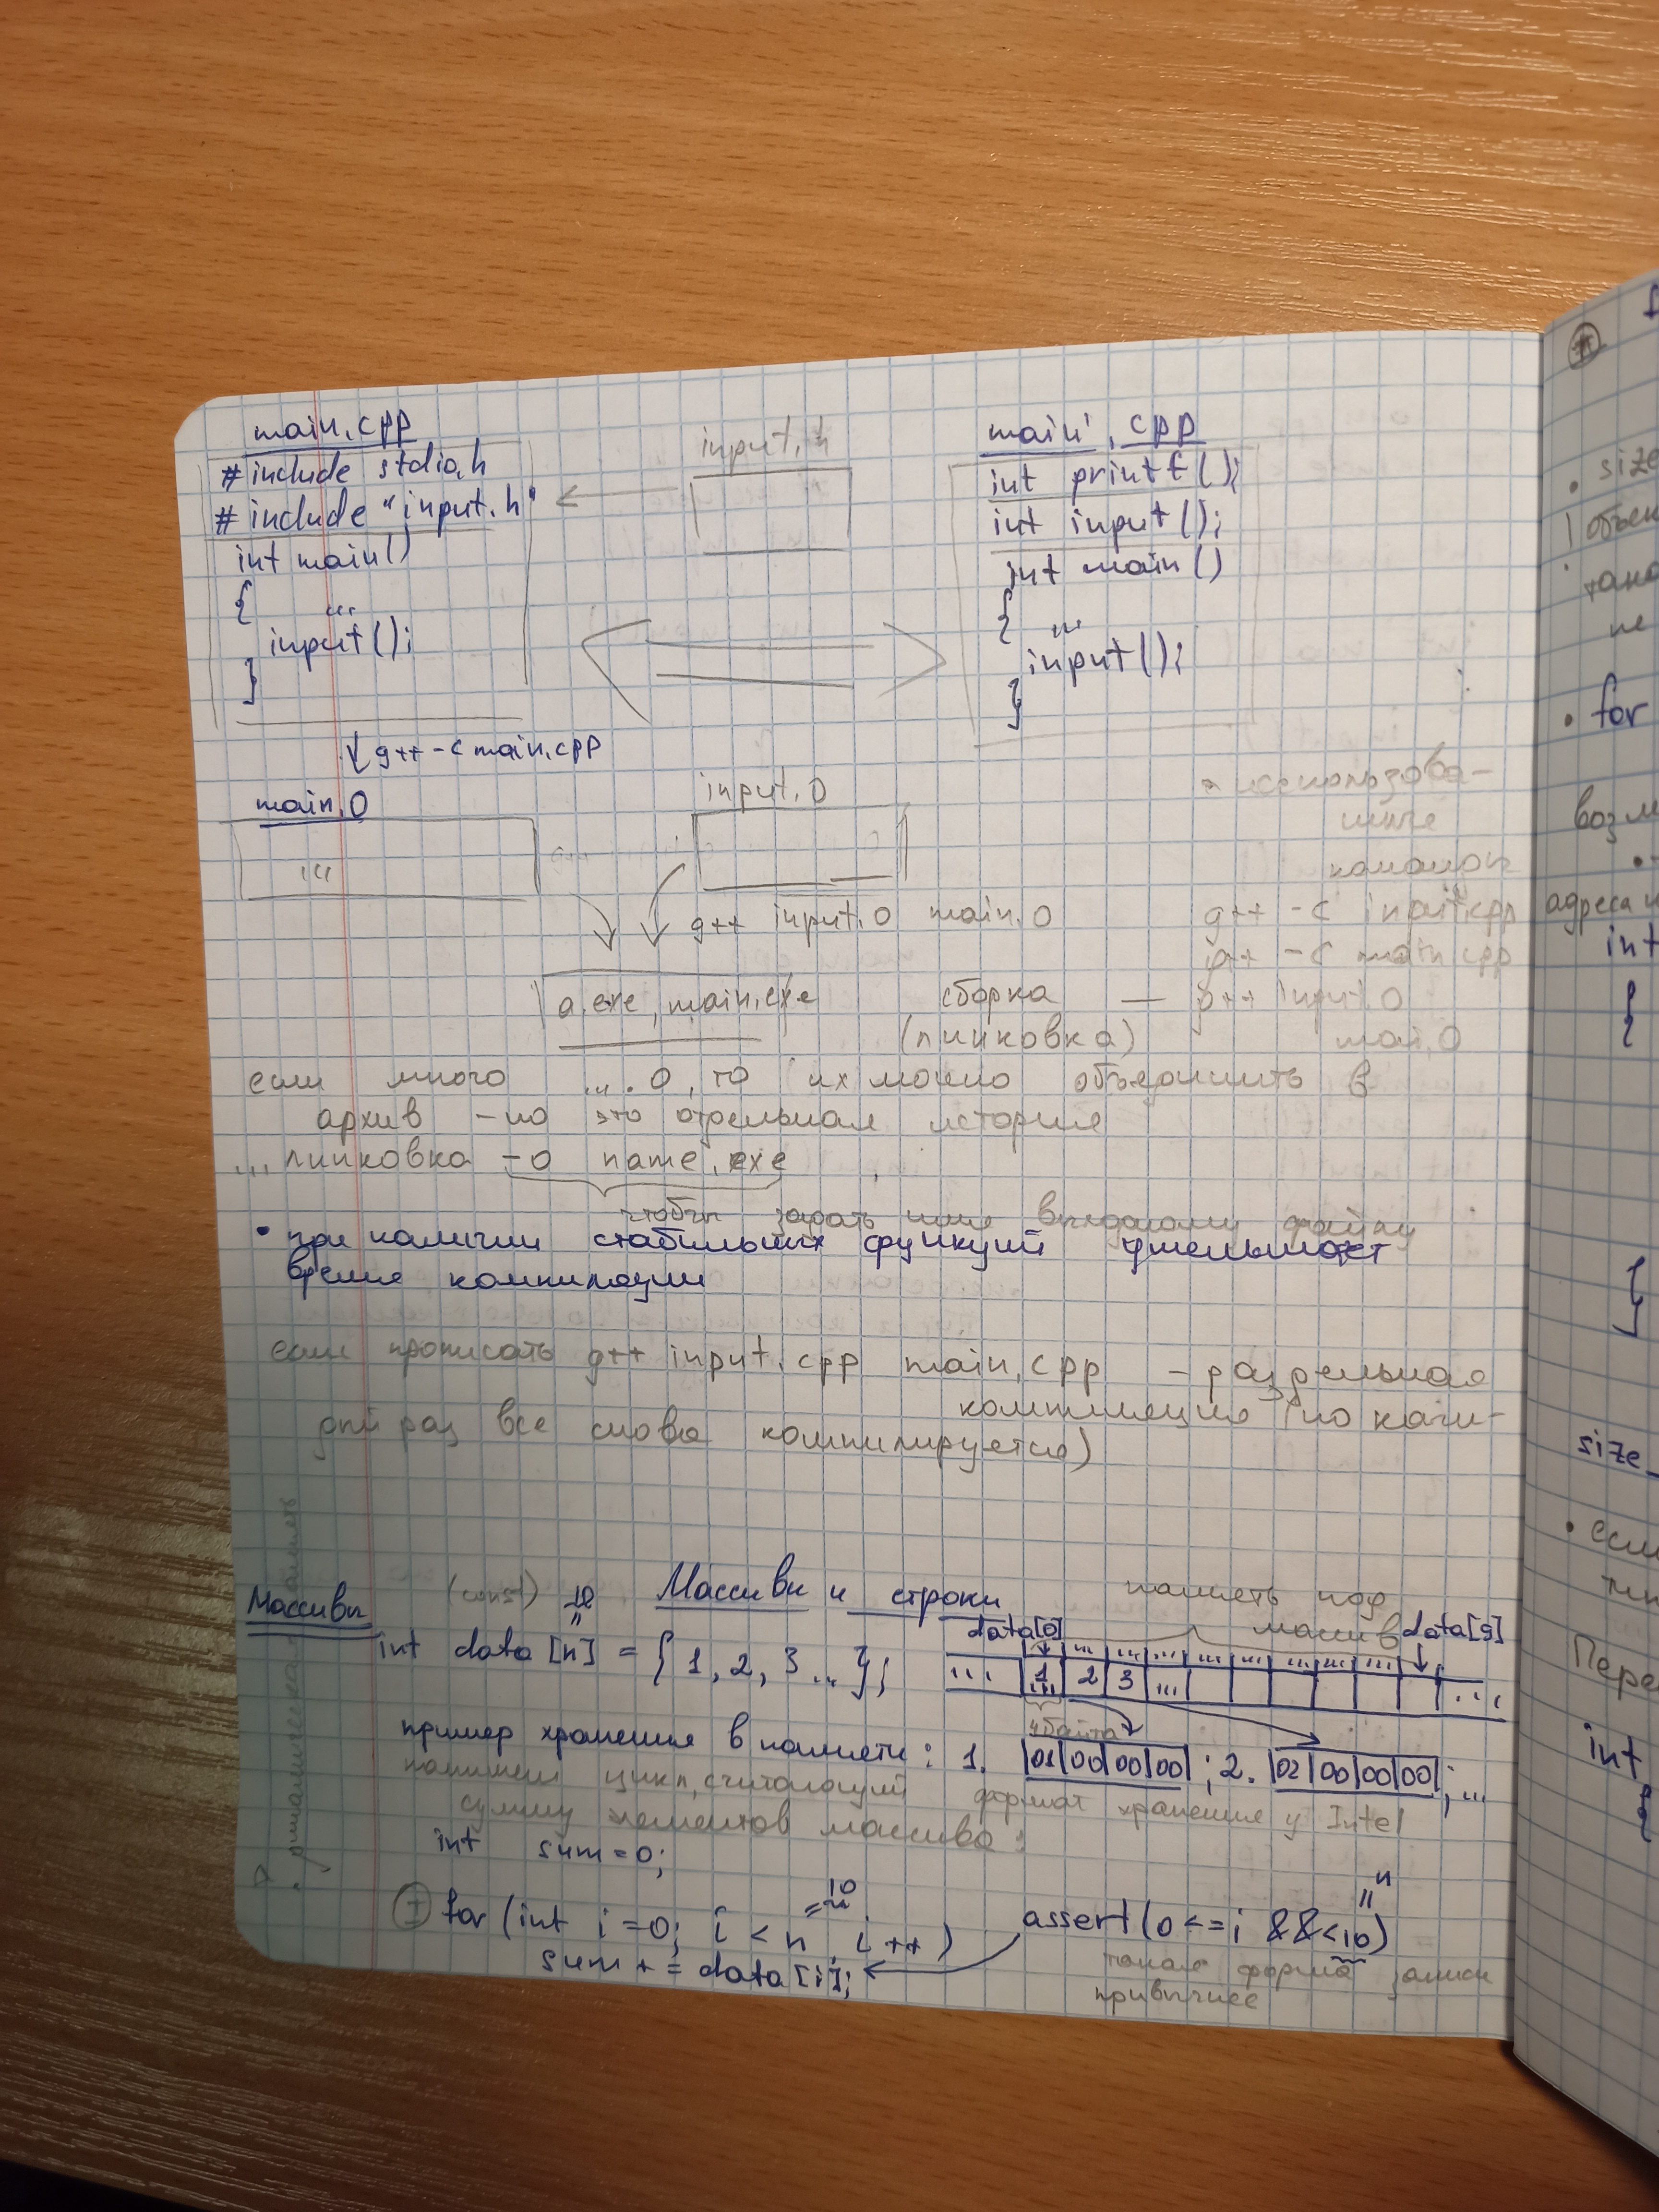 main.cpp
# include stdio.h
# include "input.h"
int main()
{ ...
input();
}
input.h
main'.cpp
int printf();
int input();
int main()
{ ...
input();
}
g++ -c main.cpp
main.o
...
input.o
g++ input.o main.o
использова-
ние
команды
g++ -c input.cpp
g++ -c main.cpp
a.exe, main.exe
сборка — g++ input.o
(линковка) mai.o
если много ... .o, то их можно объединить в
архив - но это отдельная история
... линковка -o name.exe
чтобы задать имя выходному файлу
• при наличии стабильных функций уменьшает
время компиляции
если прописать g++ input.cpp main.cpp - раздельная
компиляция (но кажд-
дый раз все снова компилируется)
Массивы и строки
Массивы
(const) 10
"
int data [n] = { 1, 2, 3 ... };
память под
массив
data[0] data[9]
... ... ... ... ... ... ... ...
... 1 2 3 ... ...
4 байта
пример хранения в памяти: 1. |01|00|00|00| ; 2. |02|00|00|00|; ...
формат хранения у Intel
напишем цикл, считающий
сумму элементов массива:
int sum = 0;
I for (int i = 0; i < n i ++ )
= 10
sum + = data [i];
assert (0 <= i && < 10)
" n
такая форма записи
привычнее
size
объек
не
• for
возм
адреса
int
{
}
size_
• если
тип
Пере
int
{